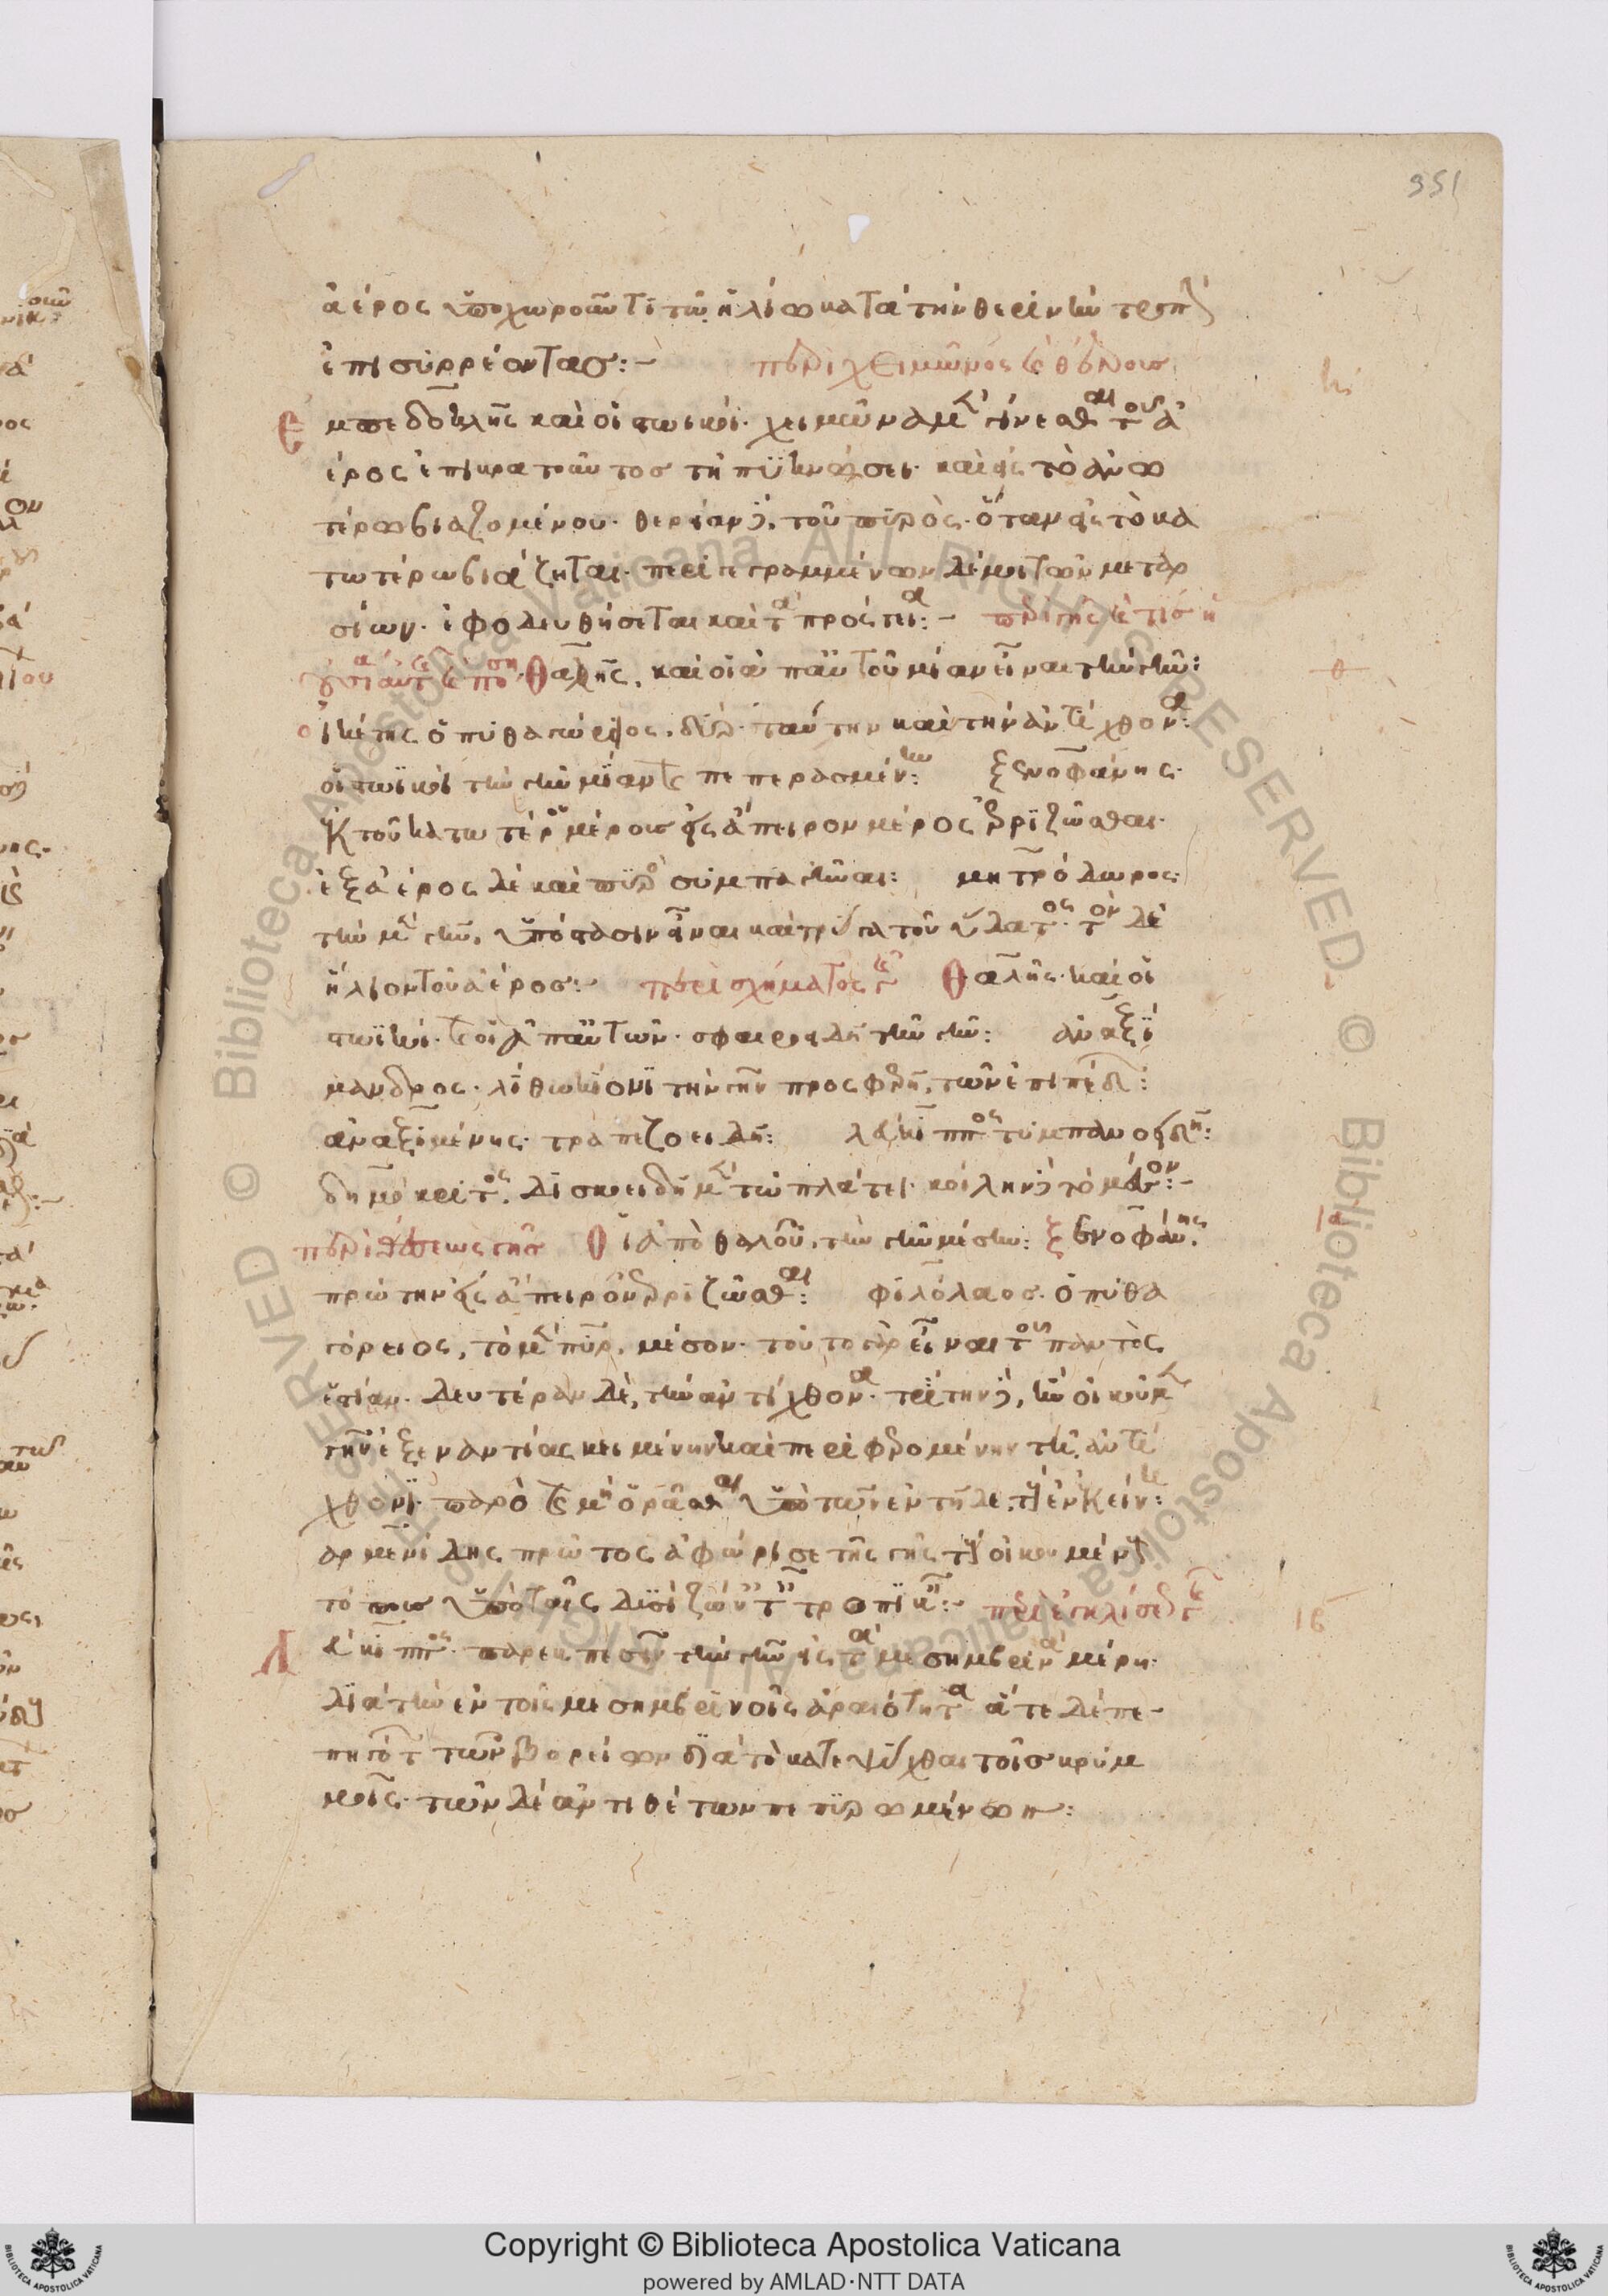 351
ἀέρος ὑποχωροῦντι τῶ ἡλίω κατὰ τὴν θερινὴν τροπ
ἐπισυρρέοντας:-  περὶ χειμῶνος καὶ θέρους
ἐμπεδοκλῆς καὶ οἱ στωικοὶ. χειμῶνα μὲν γίνεσθαι τοῦ ἀ
έρος ἐπικρατοῦντος τῆ πυκνώσει. καὶ εἰς τὸ ἀνω
τέρω βιαζομένου. θερίαν δὲ, τοῦ πυρὸς. ὅταν εἰς τὸ κα
τωτέρω βιάζηται. περιγεγραμμένων δέ μοι τῶν μεταρ
σίων. ἐφοδευθήσεται καὶ τὰ πρόσγεια:- περὶ γῆς καὶ τίς ἡ
οὐσία αὐτῆς καὶ πόση. Θαλῆς. καὶ οἱ ἀπ' αὐτοῦ μίαν εἶναι τὴν γῆν:
οἰκέτης ὁ πυθαγόρειος. δύο. ταύτην καὶ τὴν ἀντίχθονα:
οἱ στωικοὶ τὴν γῆν μίαν καὶ πεπερασμένην: ξενοφάνης.
ἐκ τοῦ κατωτέρου μέρους εἰς ἄπειρον μέρος ἐρριζῶσθαι.
ἐξ ἀέρος δὲ καὶ πυρὸς συμπαγῆναι: μητρόδωρος:
τὴν μὲν γῆν, ὑπόστασιν εἶναι καὶ τρύγα τοῦ ὕδατος. τὸν δὲ
ἥλιον τοῦ ἀέρος:- περὶ σχήματος γῆς Θαλῆς. καὶ οἱ
στωικοὶ. καὶ οἱ ἀπ' αὐτῶν. σφαιροειδῆ τὴν γῆν: ἀναξί
μανδρος. λίθω κίονι τὴν γῆν προσφερῆ. τῶν ἐπιπέδων:
ἀναξιμένης. τραπεζοειδῆ: λεύκιππος τυμπανοειδῆ:
δημόκριτος. δισκοειδῆ μὲν τῶ πλάτει. κοίλην δὲ τὸ μέσον:-
περὶ θέσεως γῆς Οἱ ἀπὸ θαλοῦ. τὴν γῆν μέσην: ξενοφάνης.
πρώτην εἰς ἄπειρον ἐρριζῶσθαι: φιλόλαος. ὁ πυθα
γόρειος, τὸ μὲν πῦρ. μέσον. τοῦτο γὰρ εἶναι τοῦ παντὸς
ἑστίαν. δευτέραν δὲ, τὴν ἀντίχθονα. τρίτην δὲ, ἣν οἰκοῦμεν
γῆν ἐξ ἐναντίας κειμένην καὶ περιφερομένην τῆ ἀντί
χθονι. παρ' ὃ καὶ μὴ ὁρᾶσθαι ὑπὸ τῶν ἐν τῆδε. τοὺς ἐν ἐκείνη:
αρμενίδης πρῶτος ἀφώρισε τῆς γῆς τοὺς οἰκουμένους
τόπους ὑπὸ ταῖς δυσὶ ζώναις ταῖς τροπικαῖς:- περὶ ἐγκλίσεως γῆς
Λεύκιππος. παρεκπεσεῖν τὴν γῆν εἰς τὰ μεσημβρινὰ μέρη.
διὰ τὴν ἐν τοῖς μεσημβρινοῖς ἀραιότητα ἅτε δὲ πε-
πηγότων τῶν βορείων διὰ τὸ κατεψύχθαι τοῖς κρυμ
μοῖς. τῶν δὲ ἀντιθέτων πεπυρωμένων:
Copyright © Biblioteca Apostolica Vaticana
powered by AMLAD·NTT DATA